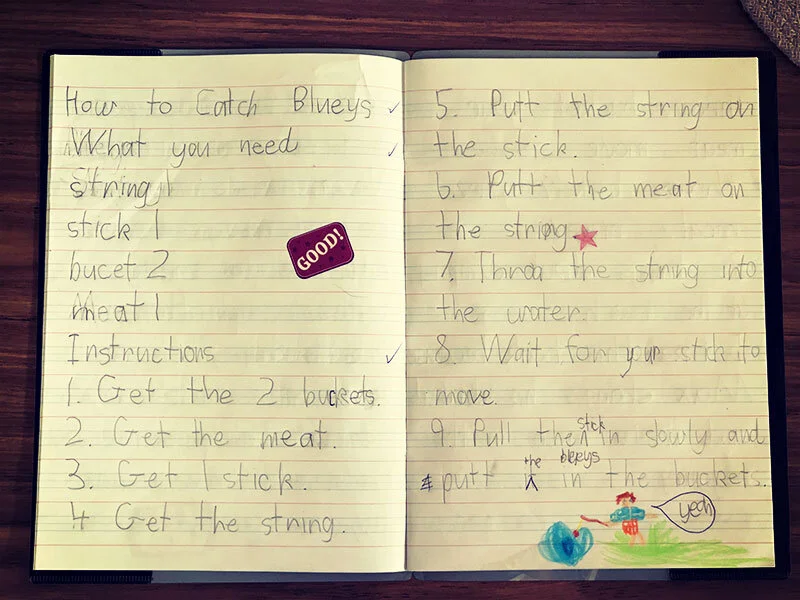 How to Catch Blueys
What you need
String 1
stick 1
bucet 2
meat 1
GOOD!
Instructions
1. Get the 2 buckets.
2. Get the meat.
3. Get 1 stick.
4 Get the string.
5. Putt the string on
the stick.
6. Putt the meat on
the string
7. Throa the string into
the water.
8. Wait for your stick to
move.
stick
9. Pull then in slowly and
the blueys
putt in the buckets.
yeah